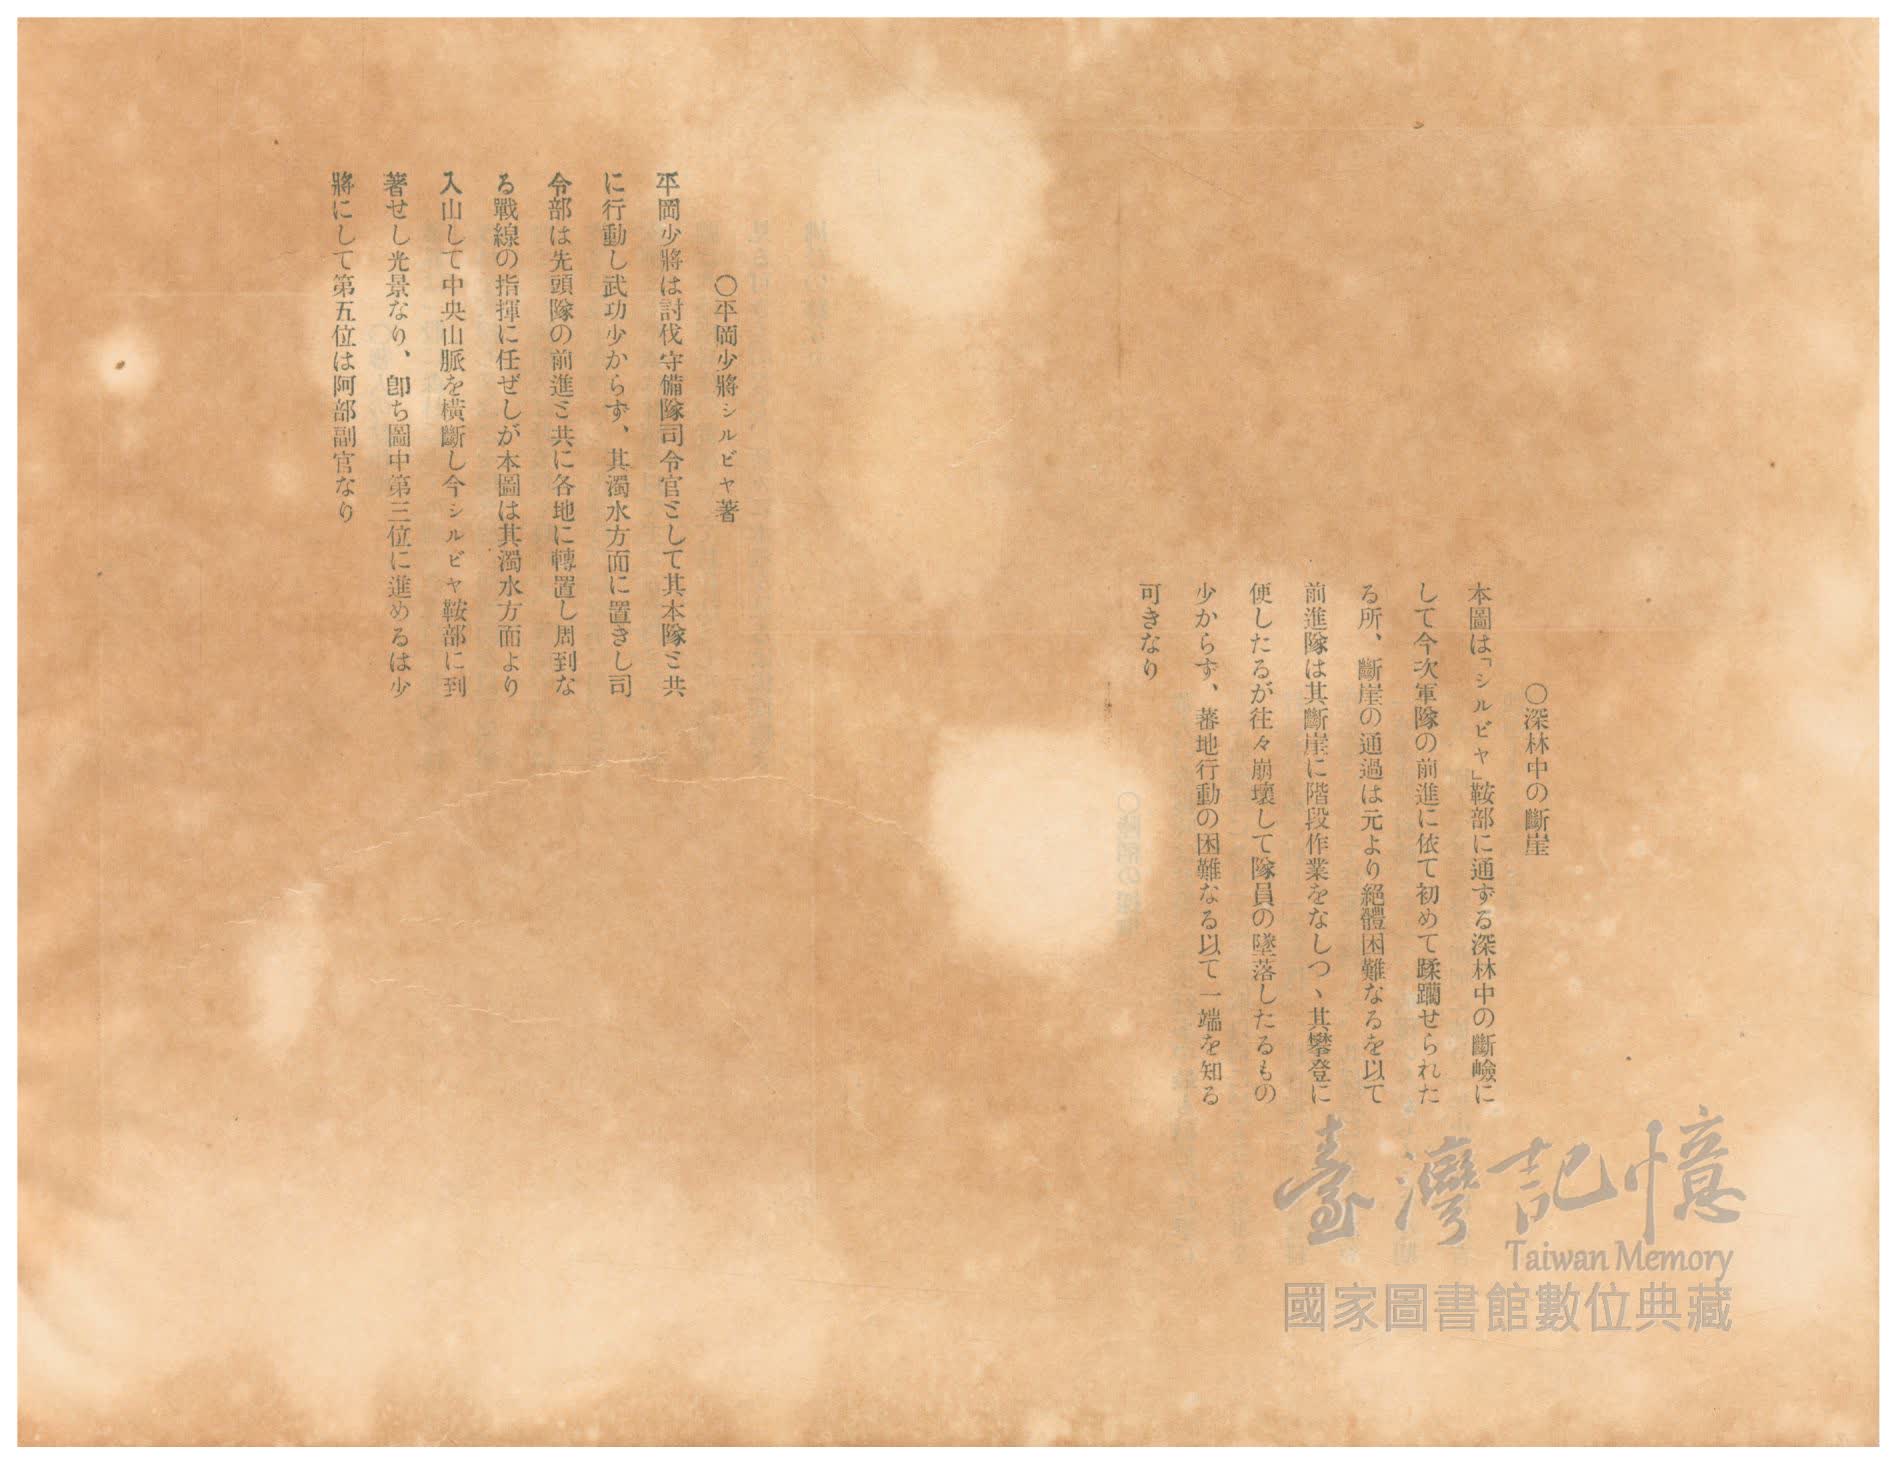 〇深林中の斷崖
本圖は「シルビヤ」鞍部に通ずる深林中の斷嶮に
して今次軍隊の前進に依て初めて蹂躙せられた
る所、斷崖の通過は元より絕體困難なるを以て
前進隊は其斷崖に階段作業をなしつヽ其攀登に
便したるが往々崩壞して隊員の墜落したるもの
少からず、蕃地行動の困難なる以て一端を知る
可きなり
〇平岡少將シルビヤ著
平岡少將は討伐守備隊司令官ミして其本隊ミ共
に行動し武功少からず、其濁水方面に置きし司
令部は先頭隊の前進ミ共に各地に轉置し周到な
る戰線の指揮に任ぜしが本圖は其濁水方面より
入山して中央山脈を橫斷し今シルビヤ鞍部に到
著せし光景なり、卽ち圖中第三位に進めるは少
將にして第五位は阿部副官なり
臺灣記憶
Taiwan Memory
國家圖書館數位典藏